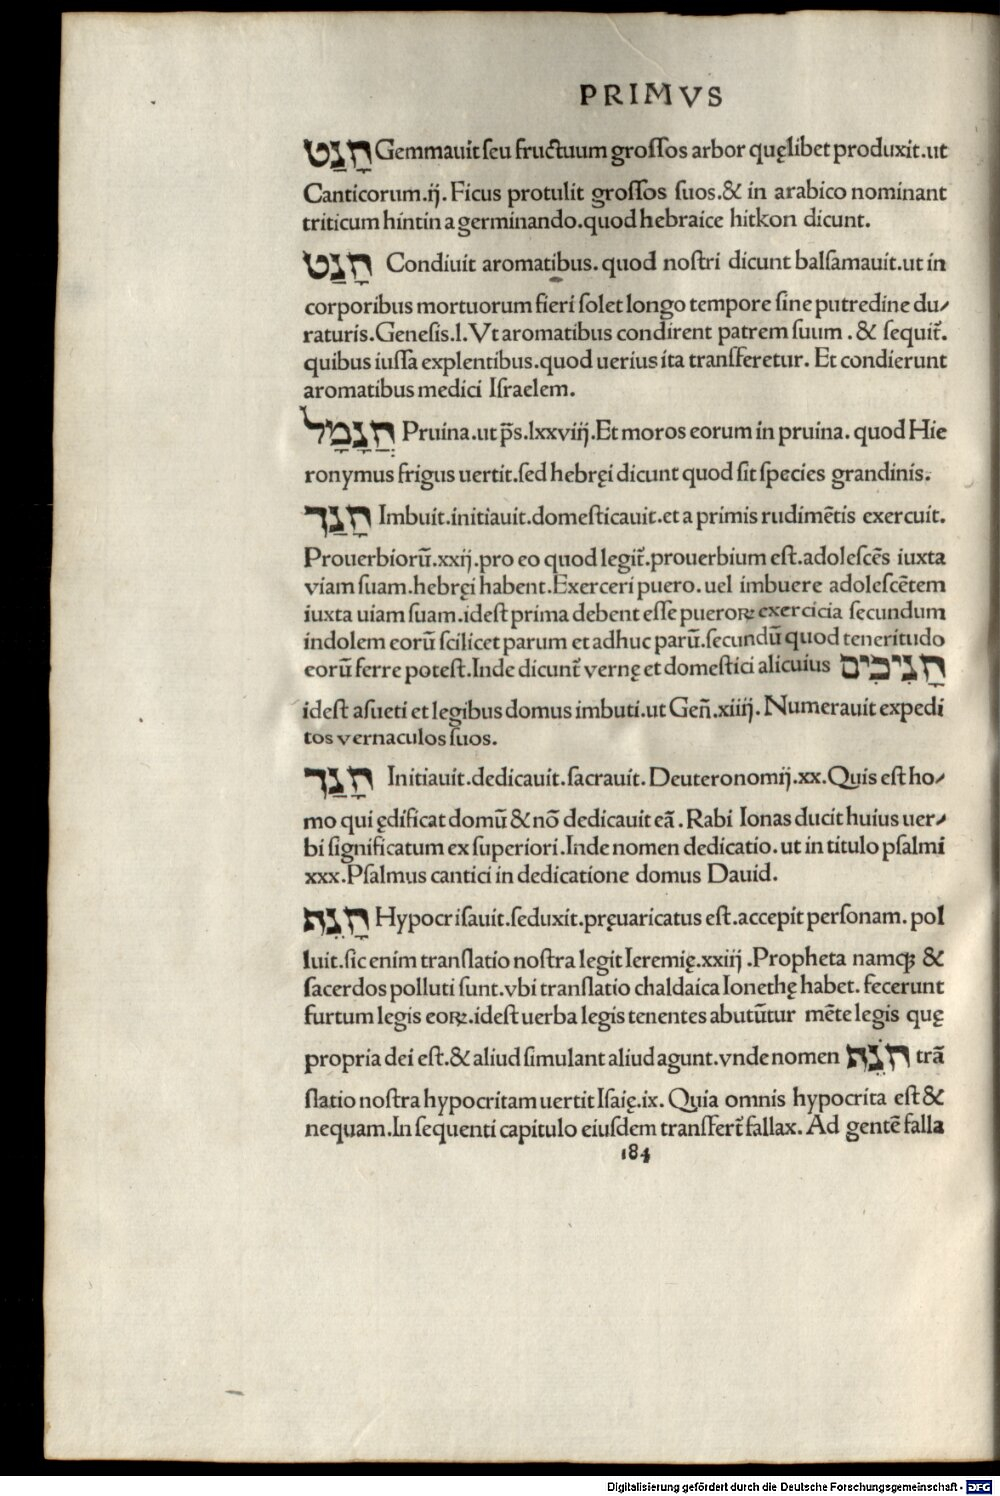 PRIMVS
חָנַט Gemmauit ſeu fructuum groſſos arbor quęlibet produxit.ut
Canticorum.ij. Ficus protulit groſſos ſuos.& in arabico nominant
triticum hintin a germinando.quod hebraice hitkon dicunt.
חָנַט Condiuit aromatibus. quod noſtri dicunt balſamauit.ut in
corporibus mortuorum fieri ſolet longo tempore ſine putredine du⸗
raturis.Geneſis.l.Vt aromatibus condirent patrem ſuum .& ſequit᷑.
quibus iuſſa explentibus.quod uerius ita tranſferetur. Et condierunt
aromatibus medici Iſraelem.
חֲנָמָל Pruina.ut p̄s.lxxviij.Et moros eorum in pruina. quod Hie
ronymus frigus uertit.ſed hebręi dicunt quod ſit ſpecies grandinis.
חָנַךְ Imbuit.initiauit.domeſticauit.et a primis rudimētis exercuit.
Prouerbiorū.xxij.pro eo quod legit᷑.prouerbium eſt.adoleſcēs iuxta
viam ſuam.hebręi habent.Exerceri puero. uel imbuere adoleſcētem
iuxta uiam ſuam.ideſt prima debent eſſe pueroꝝ exercicia ſecundum
indolem eorū ſcilicet parum et adhuc parū.ſecundū quod teneritudo
eorū ferre poteſt.Inde dicunt᷑ vernę et domeſtici alicuius חָנִיכִים
ideſt aſueti et legibus domus imbuti.ut Geñ.xiiij. Numerauit expedi
tos vernaculos ſuos.
חָנַךְ Initiauit.dedicauit.ſacrauit. Deuteronomij.xx.Quis eſt ho⸗
mo qui ędificat domū & nō dedicauit eā. Rabi Ionas ducit huius uer⸗
bi ſignificatum ex ſuperiori.Inde nomen dedicatio. ut in titulo pſalmi
xxx.Pſalmus cantici in dedicatione domus Dauid.
חָנֵף Hypocriſauit.ſeduxit.pręuaricatus eſt.accepit perſonam. pol
luit.ſic enim tranſlatio noſtra legit Ieremię.xxiij .Propheta namqꝫ &
ſacerdos polluti ſunt.vbi tranſlatio chaldaica Ionethę habet. fecerunt
furtum legis eoꝝ.ideſt uerba legis tenentes abutūtur mēte legis quę
propria dei eſt.& aliud ſimulant aliud agunt.vnde nomen חֹנֵף trā
ſlatio noſtra hypocritam uertit Iſaię.ix. Quia omnis hypocrita eſt &
nequam.In ſequenti capitulo eiuſdem tranſfert᷑ fallax. Ad gentē falla
184
Digitalisierung gefördert durch die Deutsche Forschungsgemeinschaft - DFG